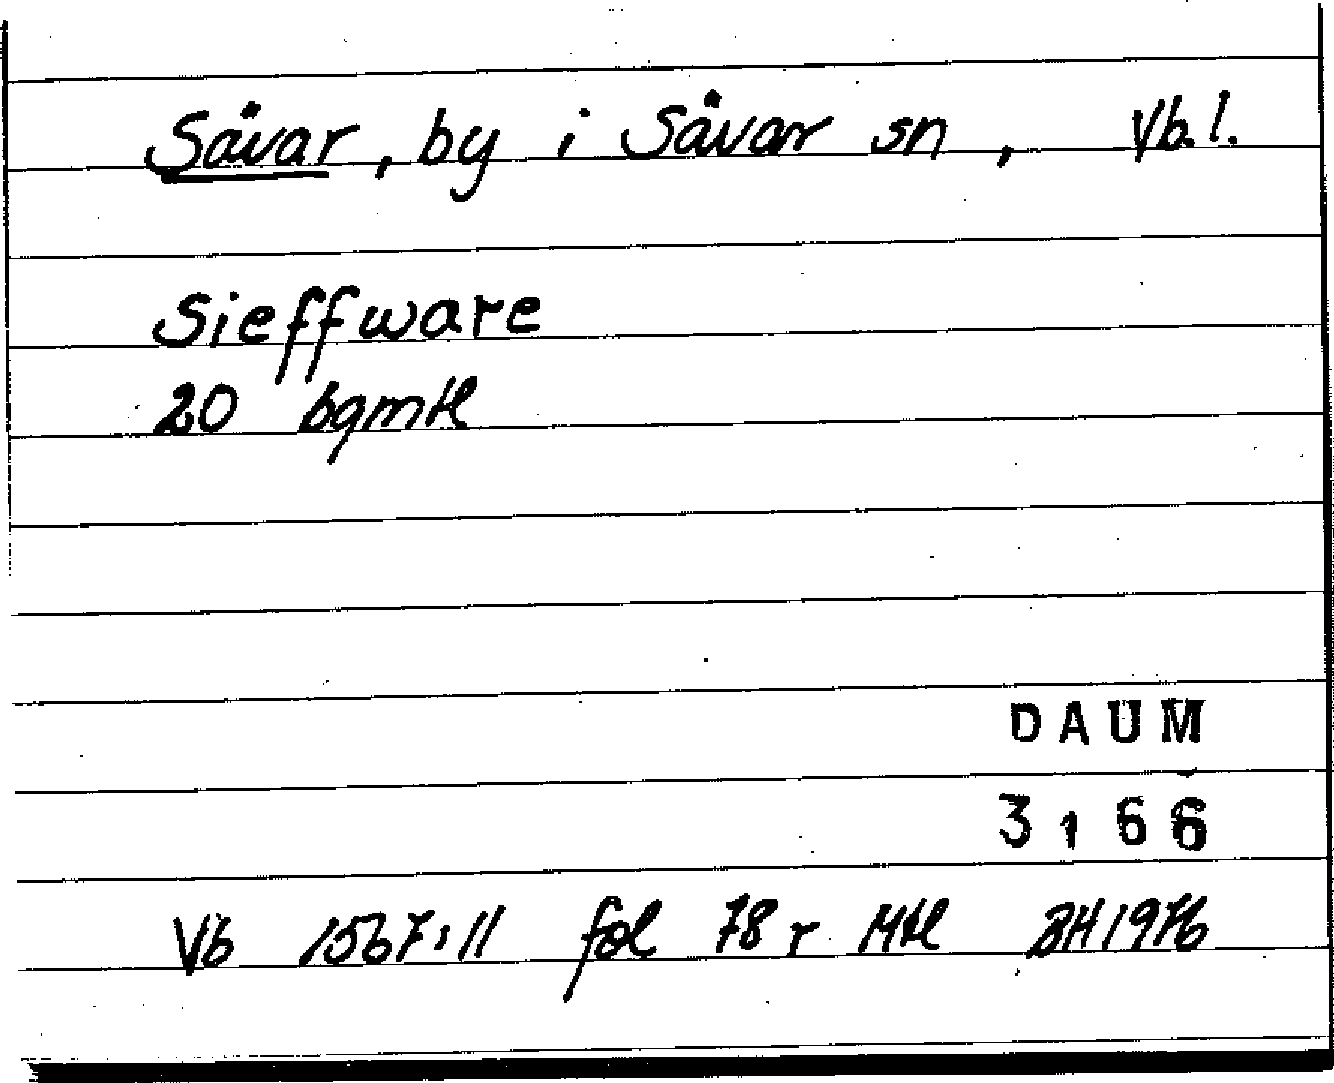 Sävar, by i Sävar sn, Vb.l.
Sieffware
20 bgmtl
DAUM
3166
Vb 1567:11 fol 78 r Mtl BH1976